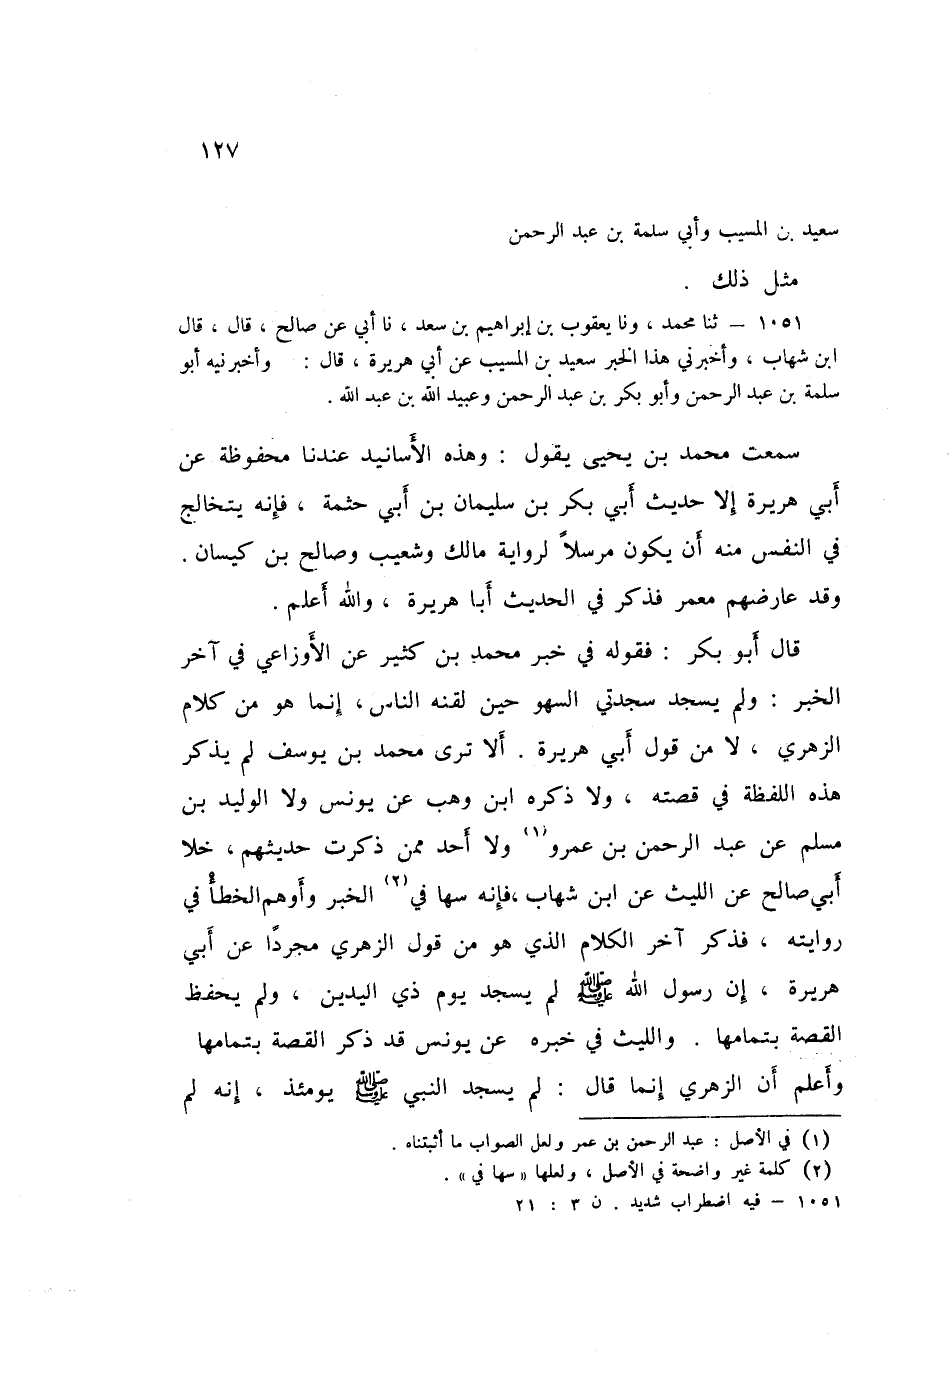 ١٢٧
سعيد بن المسيب وأبي سلمة بن عبد الرحمن
مثل ذلك .
١٠٥١ – ثنا محمد ، ونا يعقوب بن إبراهيم بن سعد ، نا أبي عن صالح ، قال ، قال
ابن شهاب ، وأخبرني هذا الخبر سعيد بن المسيب عن أبي هريرة ، قال : وأخبرنيه أبو
سلمة بن عبد الرحمن وأبو بكر بن عبد الرحمن وعبيد الله بن عبد الله .
سمعت محمد بن يحيى يقول : وهذه الأسانيد عندنا محفوظة عن
أبي هريرة إلا حديث أبي بكر بن سليمان بن أبي حثمة ، فإنه يتخالج
في النفس منه أن يكون مرسلاً لرواية مالك وشعيب وصالح بن كيسان .
وقد عارضهم معمر فذكر في الحديث أبا هريرة ، والله أعلم .
قال أبو بكر : فقوله في خبر محمد بن كثير عن الأوزاعي في آخر
الخبر : ولم يسجد سجدتي السهو حين لقنه الناس ، إنما هو من كلام
الزهري ، لا من قول أبي هريرة . ألا ترى محمد بن يوسف لم يذكر
هذه اللفظة في قصته ، ولا ذكره ابن وهب عن يونس ولا الوليد بن
مسلم عن عبد الرحمن بن عمرو(١) ولا أحد ممن ذكرت حديثهم ، خلا
أبي صالح عن الليث عن ابن شهاب ،فإنه سها في(٢) الخبر وأوهم الخطأ في
روايته ، فذكر آخر الكلام الذي هو من قول الزهري مجردًا عن أبي
هريرة ، إن رسول الله ﷺ لم يسجد يوم ذي اليدين ، ولم يحفظ
القصة بتمامها . والليث في خبره عن يونس قد ذكر القصة بتمامها
وأعلم أن الزهري إنما قال : لم يسجد النبي ﷺ يومئذ ، إنه لم
(١) في الأصل : عبد الرحمن بن عمر ولعل الصواب ما أثبتناه .
(٢) كلمة غير واضحة في الأصل ، ولعلها « سها في » .
١٠٥١ – فيه اضطراب شديد . ن ٣ : ٢١